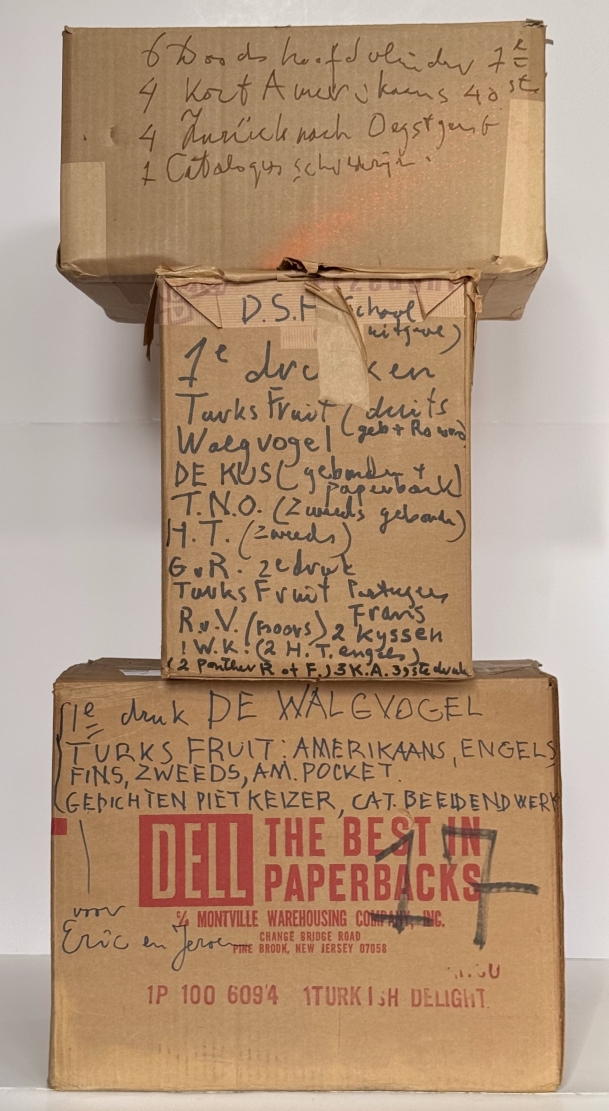 6 Doodshoofdvlinder 7e
4 Kort Amerikaans 40ste
4 Zurück nach Oegstgeest
1 Catalogus schilderijen.
D.S.H School
uitgave)
1e drukken
Turks Fruit (duits
geb + Roro)
Walgvogel
DE KUS (gebonden +
paperback)
T.N.O. (Zweeds gebonden)
H.T. (Zweeds)
G.v.R. 2e druk
Turks Fruit Portugees
Frans
R.v.V. (Noors) 2 Kyssen
! W.K. (2 H.T. engels)
(2 Panther R of F.) 3 K.A. 39ste druk
1e druk DE WALGVOGEL
TURKS FRUIT: AMERIKAANS, ENGELS
FINS, ZWEEDS, AM. POCKET.
GEDICHTEN PIET KEIZER, CAT. BEELDEND WERK
DELL THE BEST IN
PAPERBACKS
17
voor
Eric en Jeroen
℅ MONTVILLE WAREHOUSING COMPANY, INC.
CHANGE BRIDGE ROAD
PINE BROOK, NEW JERSEY 07058
1P 100 6094 1TURKISH DELIGHT.